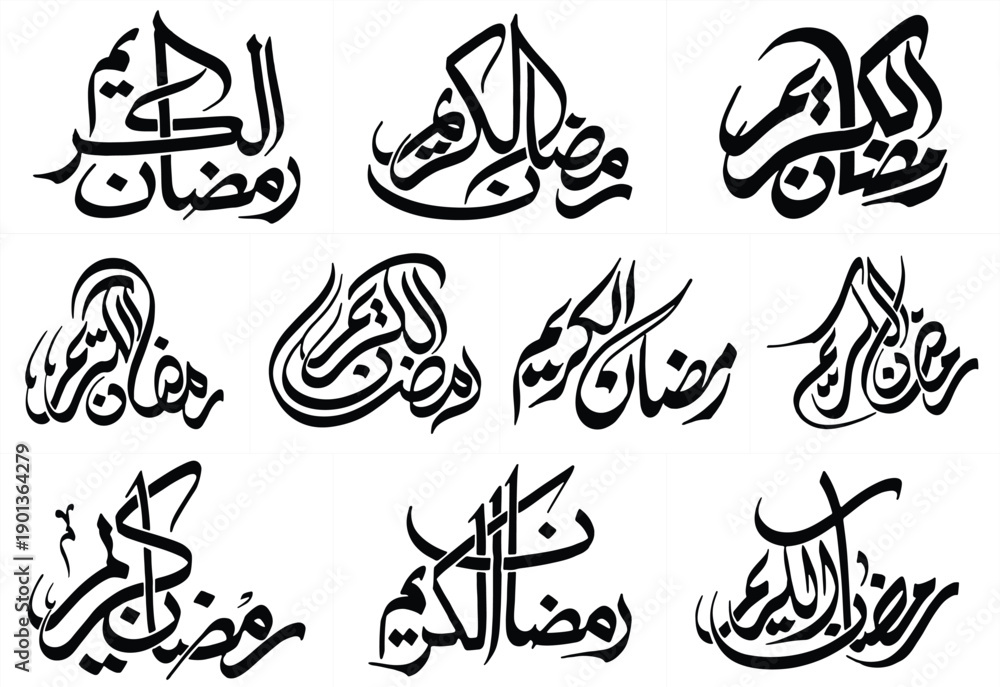 رمضان الكريم
رمضان الكريم
رمضان الكريم
رمضان الكريم
رمضان الكريم
رمضان الكريم
رمضان الكريم
رمضان كريم
رمضان الكريم
رمضان الكريم
Adobe Stock | #1901364279